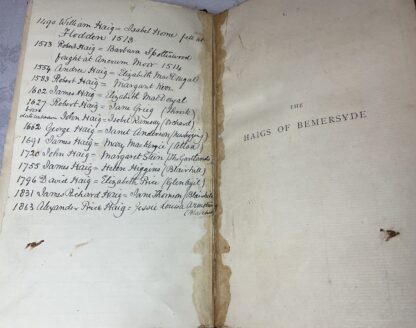 1490 William Haig = Isabel Home fell at
Flodden 1513
1573 Robert Haig = Barbara Spottiswood
fought at Ancrum Moor 1514
1554 Andrew Haig = Elizabeth MacDougal
1583 Robert Haig = Margaret Kerr
1602 James Haig = Elizabeth MacDougal
1627 Robert Haig = Jane Greig (Throsk)
John Haig = Isobel Ramsay (Orchard)
1662 George Haig = Janet Anderson (Newbigging)
1691 James Haig = Mary MacKenzie (Alloa)
1720 John Haig = Margaret Stein (The Garlands)
1755 James Haig = Helen Higgins (Blairhill)
1796 David Haig = Elizabeth Price (Glenogil)
1831 James Richard Haig = Jane Thomson (Blairhill)
1863 Alexander Price Haig = Jessie Louisa
THE
HAIGS OF BEMERSYDE